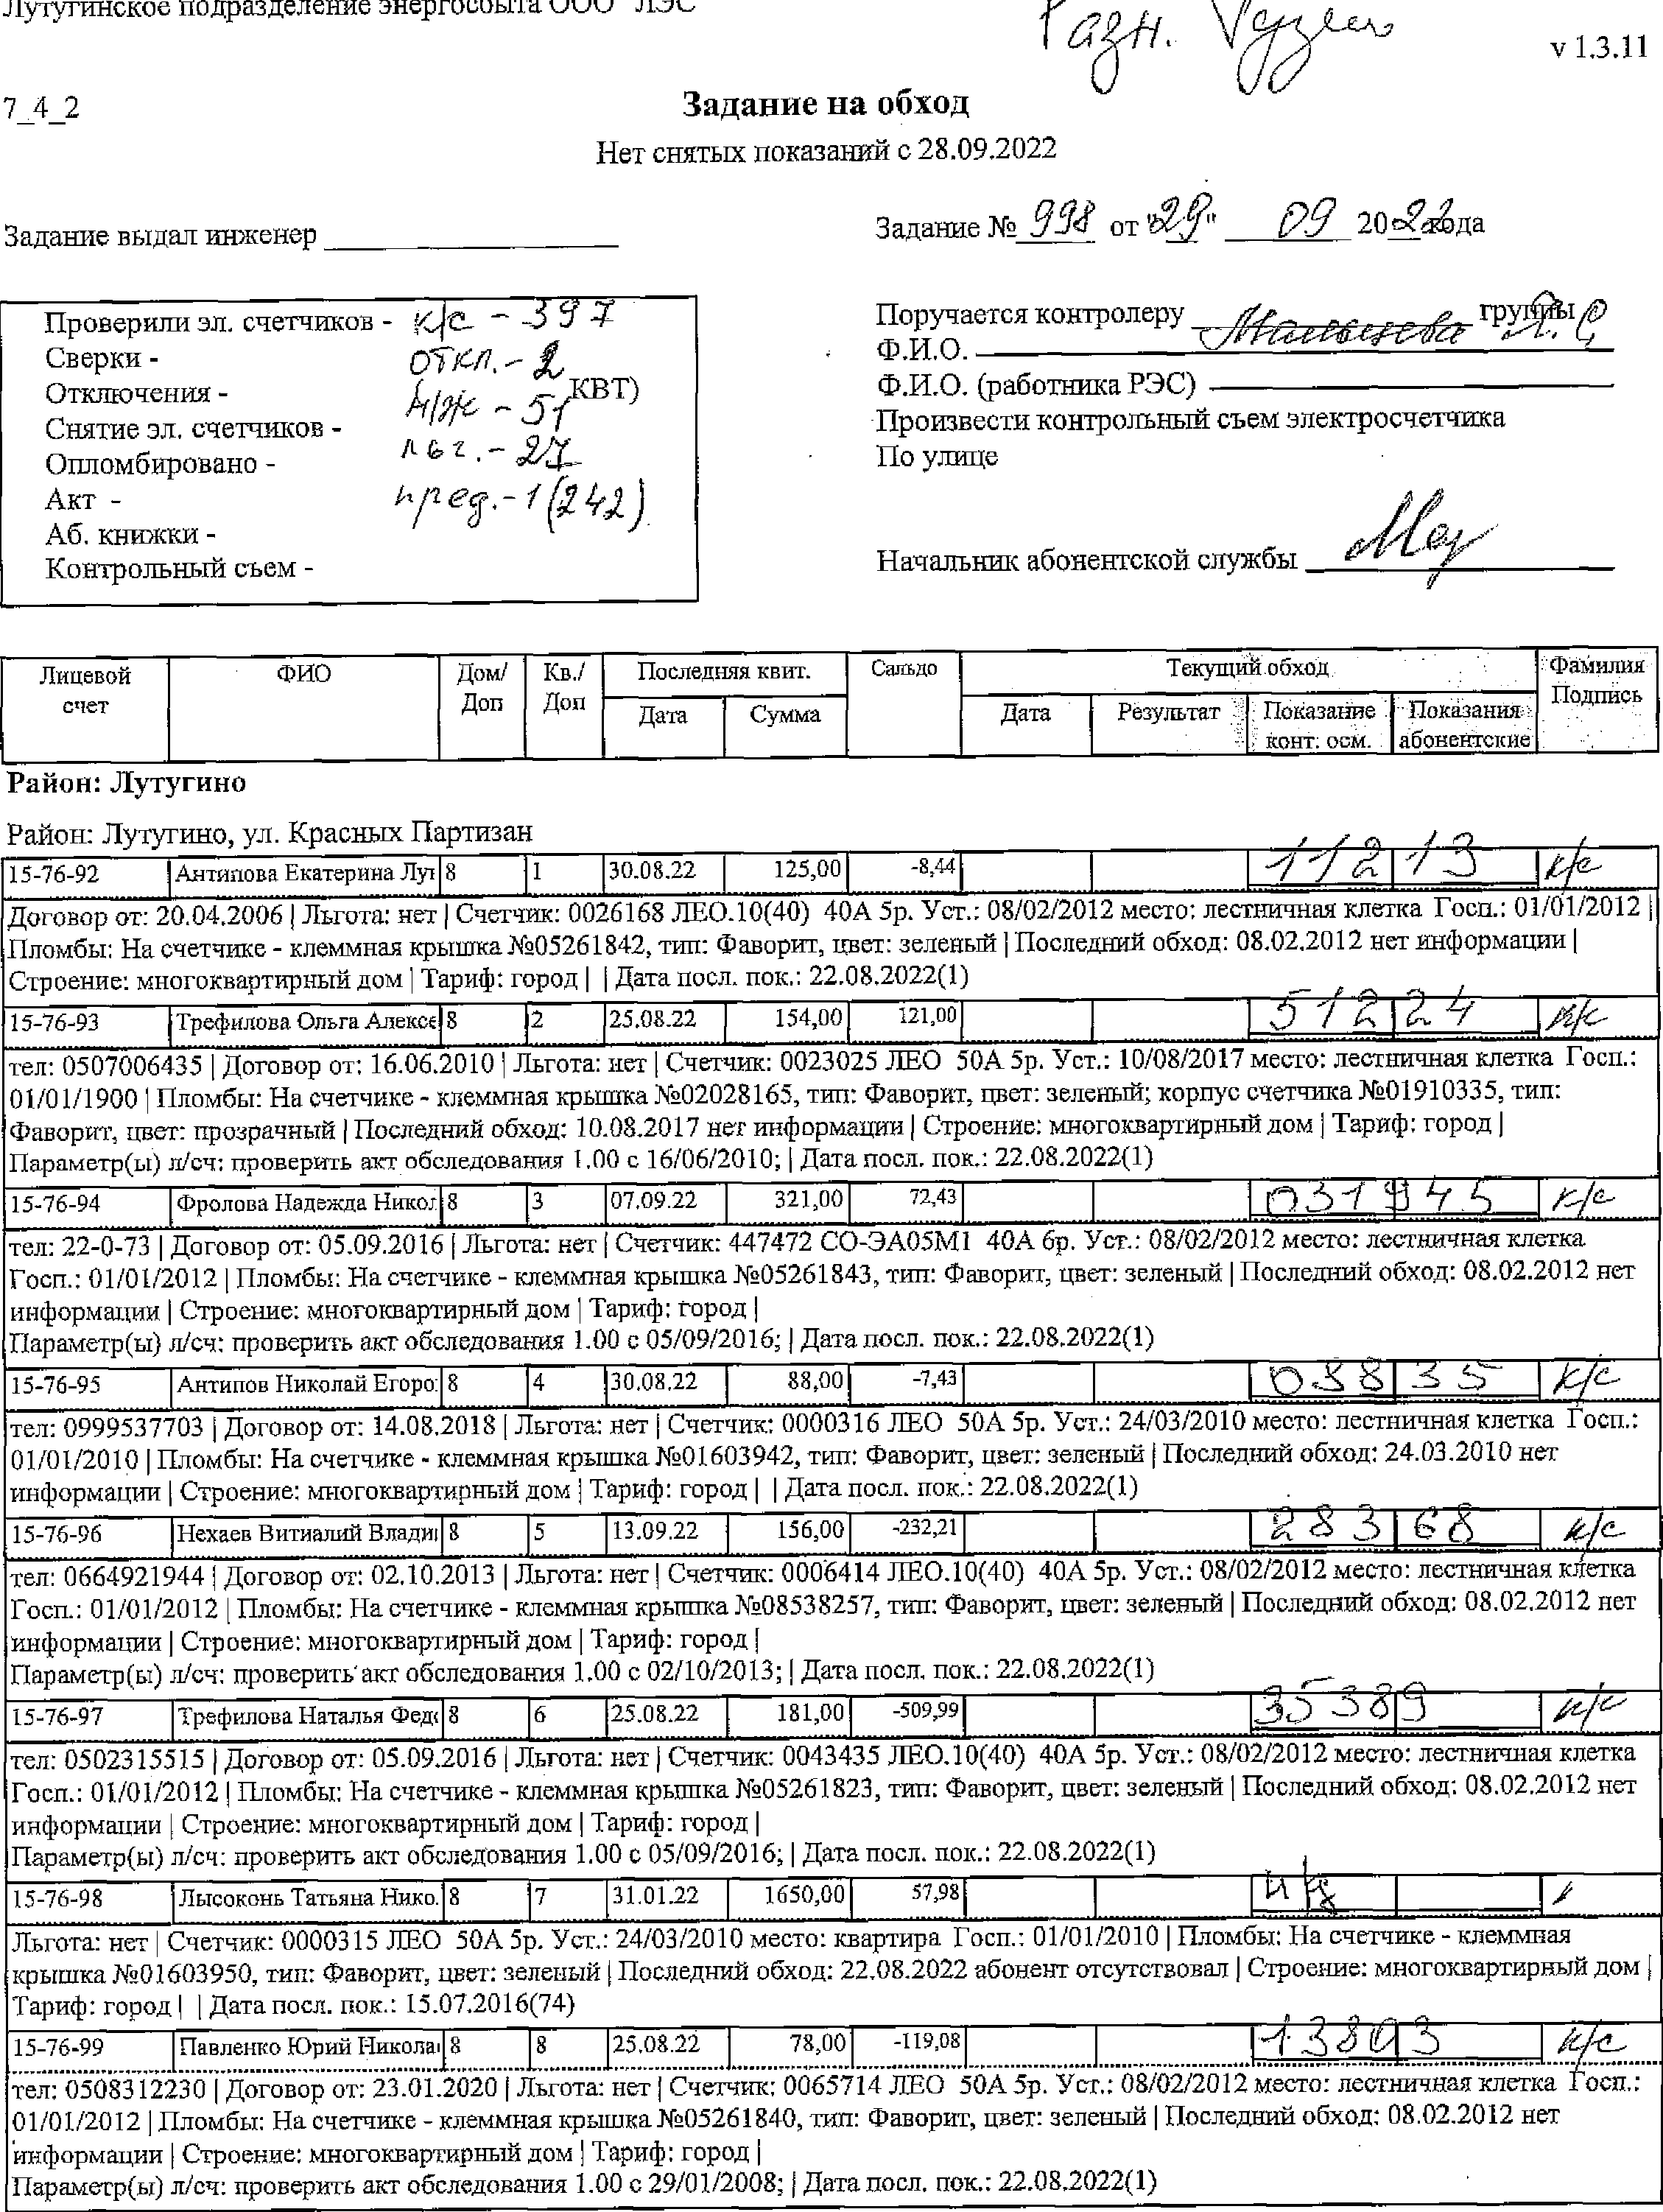 Лутугинское подразделение энергосбыта ООО "ЛЭС"
Разн.
v 1.3.11
7_4_2
Задание на обход
Нет снятых показаний с 28.09.2022
Задание выдал инженер
Задание № 998 от "29" 09 2022 года
Проверили эл. счетчиков - к/с - 397
Сверки - откл. - 2
Отключения - н/ж - 51 КВТ)
Снятие эл. счетчиков - льг. - 27
Опломбировано -
Акт - пред. - 1 (242)
Аб. книжки -
Контрольный съем -
Поручается контролеру группы
Ф.И.О.
Ф.И.О. (работника РЭС)
Произвести контрольный съем электросчетчика
По улице
Начальник абонентской службы
Лицевой счет | ФИО | Дом/ Доп | Кв./ Доп | Последняя квит. | Сальдо | Текущий обход | Фамилия Подпись
Дата | Сумма | Дата | Результат | Показание конт. осм. | Показания абонентские
Район: Лутугино
Район: Лутугино, ул. Красных Партизан
15-76-92 | Антипова Екатерина Лут | 8 | 1 | 30.08.22 | 125,00 | -8,44 | 11213 | к/с
Договор от: 20.04.2006 | Льгота: нет | Счетчик: 0026168 ЛЕО.10(40) 40А 5р. Уст.: 08/02/2012 место: лестничная клетка Госп.: 01/01/2012 |
Пломбы: На счетчике - клеммная крышка №05261842, тип: Фаворит, цвет: зеленый | Последний обход: 08.02.2012 нет информации |
Строение: многоквартирный дом | Тариф: город | | Дата посл. пок.: 22.08.2022(1)
15-76-93 | Трефилова Ольга Алексе | 8 | 2 | 25.08.22 | 154,00 | 121,00 | 51224 | к/с
тел: 0507006435 | Договор от: 16.06.2010 | Льгота: нет | Счетчик: 0023025 ЛЕО 50А 5р. Уст.: 10/08/2017 место: лестничная клетка Госп.:
01/01/1900 | Пломбы: На счетчике - клеммная крышка №02028165, тип: Фаворит, цвет: зеленый; корпус счетчика №01910335, тип:
Фаворит, цвет: прозрачный | Последний обход: 10.08.2017 нет информации | Строение: многоквартирный дом | Тариф: город |
Параметр(ы) л/сч: проверить акт обследования 1.00 с 16/06/2010; | Дата посл. пок.: 22.08.2022(1)
15-76-94 | Фролова Надежда Никол | 8 | 3 | 07.09.22 | 321,00 | 72,43 | 031945 | к/с
тел: 22-0-73 | Договор от: 05.09.2016 | Льгота: нет | Счетчик: 447472 СО-ЭА05М1 40А 6р. Уст.: 08/02/2012 место: лестничная клетка
Госп.: 01/01/2012 | Пломбы: На счетчике - клеммная крышка №05261843, тип: Фаворит, цвет: зеленый | Последний обход: 08.02.2012 нет
информации | Строение: многоквартирный дом | Тариф: город |
Параметр(ы) л/сч: проверить акт обследования 1.00 с 05/09/2016; | Дата посл. пок.: 22.08.2022(1)
15-76-95 | Антипов Николай Егоро | 8 | 4 | 30.08.22 | 88,00 | -7,43 | 08835 | к/с
тел: 0999537703 | Договор от: 14.08.2018 | Льгота: нет | Счетчик: 0000316 ЛЕО 50А 5р. Уст.: 24/03/2010 место: лестничная клетка Госп.:
01/01/2010 | Пломбы: На счетчике - клеммная крышка №01603942, тип: Фаворит, цвет: зеленый | Последний обход: 24.03.2010 нет
информации | Строение: многоквартирный дом | Тариф: город | | Дата посл. пок.: 22.08.2022(1)
15-76-96 | Нехаев Витиалий Влади | 8 | 5 | 13.09.22 | 156,00 | -232,21 | 28368 | к/с
тел: 0664921944 | Договор от: 02.10.2013 | Льгота: нет | Счетчик: 0006414 ЛЕО.10(40) 40А 5р. Уст.: 08/02/2012 место: лестничная клетка
Госп.: 01/01/2012 | Пломбы: На счетчике - клеммная крышка №08538257, тип: Фаворит, цвет: зеленый | Последний обход: 08.02.2012 нет
информации | Строение: многоквартирный дом | Тариф: город |
Параметр(ы) л/сч: проверить акт обследования 1.00 с 02/10/2013; | Дата посл. пок.: 22.08.2022(1)
15-76-97 | Трефилова Наталья Фед | 8 | 6 | 25.08.22 | 181,00 | -509,99 | 35389 | к/с
тел: 0502315515 | Договор от: 05.09.2016 | Льгота: нет | Счетчик: 0043435 ЛЕО.10(40) 40А 5р. Уст.: 08/02/2012 место: лестничная клетка
Госп.: 01/01/2012 | Пломбы: На счетчике - клеммная крышка №05261823, тип: Фаворит, цвет: зеленый | Последний обход: 08.02.2012 нет
информации | Строение: многоквартирный дом | Тариф: город |
Параметр(ы) л/сч: проверить акт обследования 1.00 с 05/09/2016; | Дата посл. пок.: 22.08.2022(1)
15-76-98 | Лысоконь Татьяна Нико. | 8 | 7 | 31.01.22 | 1650,00 | 57,98
Льгота: нет | Счетчик: 0000315 ЛЕО 50А 5р. Уст.: 24/03/2010 место: квартира Госп.: 01/01/2010 | Пломбы: На счетчике - клеммная
крышка №01603950, тип: Фаворит, цвет: зеленый | Последний обход: 22.08.2022 абонент отсутствовал | Строение: многоквартирный дом |
Тариф: город | | Дата посл. пок.: 15.07.2016(74)
15-76-99 | Павленко Юрий Никола | 8 | 8 | 25.08.22 | 78,00 | -119,08 | 13803 | к/с
тел: 0508312230 | Договор от: 23.01.2020 | Льгота: нет | Счетчик: 0065714 ЛЕО 50А 5р. Уст.: 08/02/2012 место: лестничная клетка Госп.:
01/01/2012 | Пломбы: На счетчике - клеммная крышка №05261840, тип: Фаворит, цвет: зеленый | Последний обход: 08.02.2012 нет
информации | Строение: многоквартирный дом | Тариф: город |
Параметр(ы) л/сч: проверить акт обследования 1.00 с 29/01/2008; | Дата посл. пок.: 22.08.2022(1)